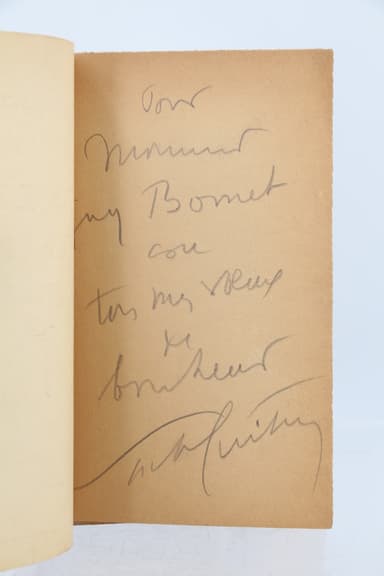 Pour
Monsieur
Guy Bonnet
avec
tous mes vœux
de
bonheur
Sacha Guitry